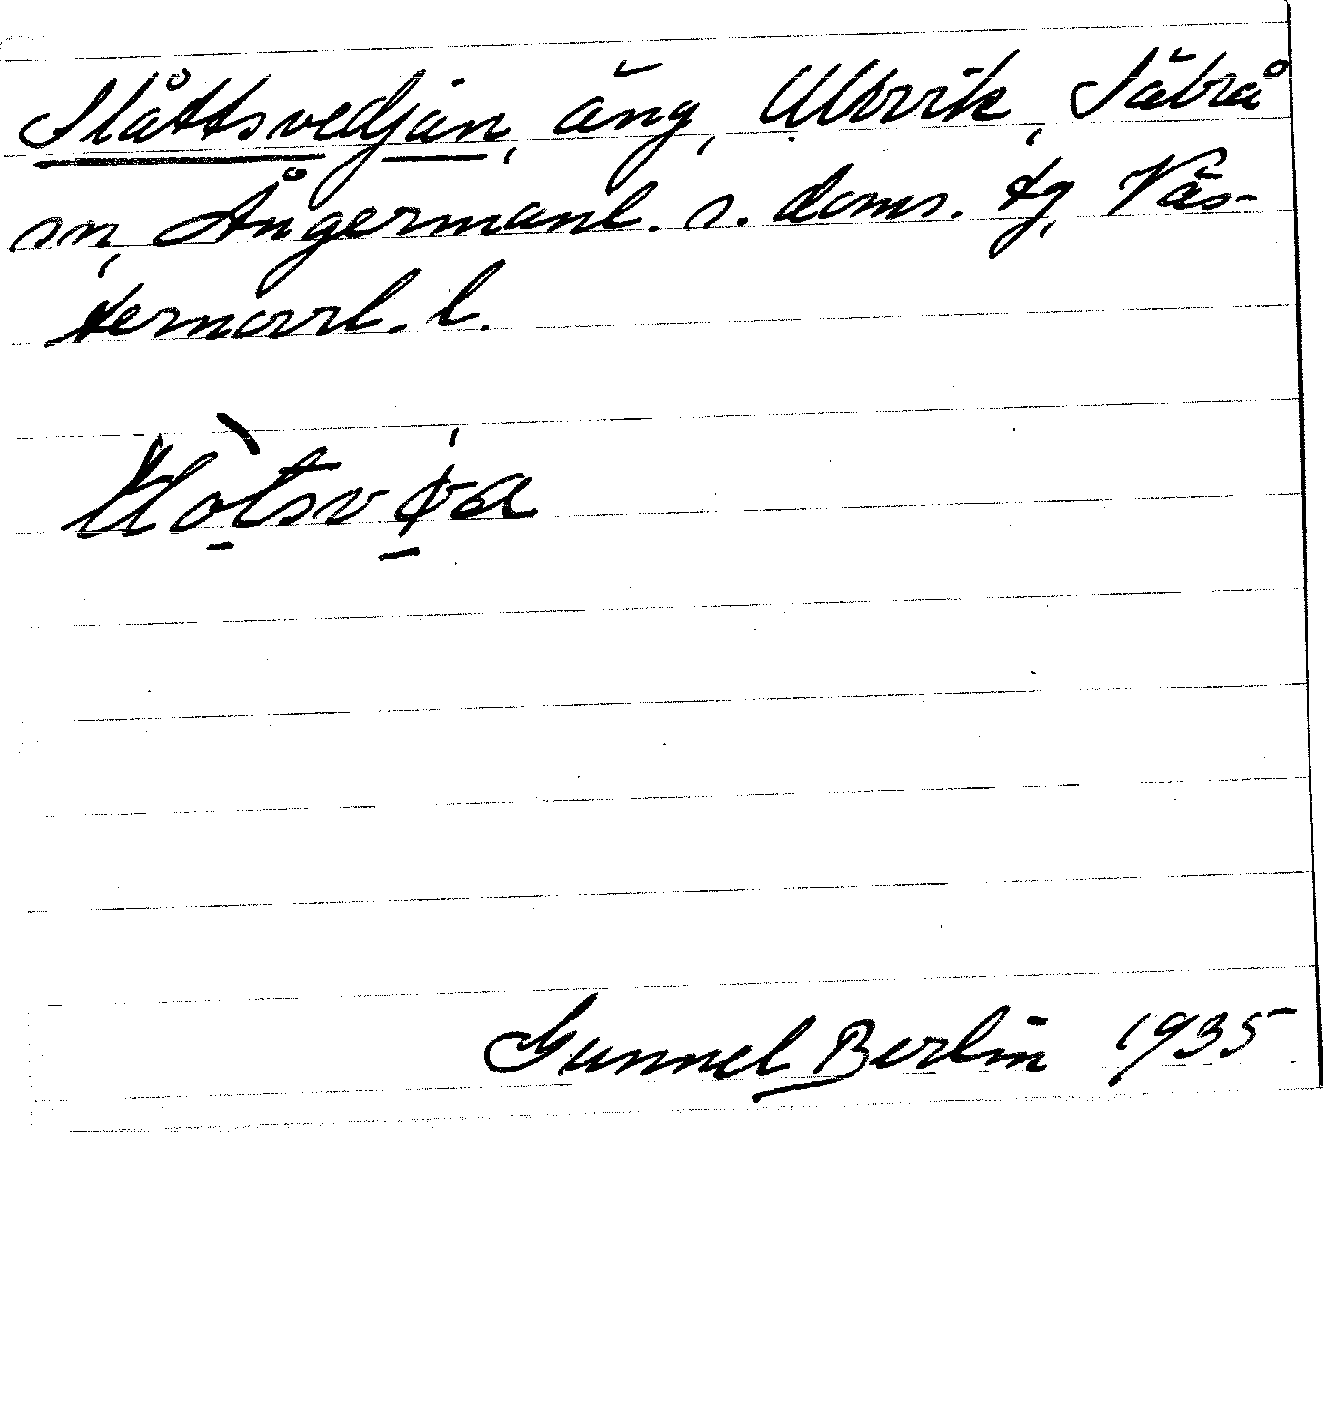 Slåttsvedjan, äng, Ulvvik, Säbrå
sn, Ångermanl. s. doms. tg, Väs-
ternorrl. l.
Gunnel Berlin 1935